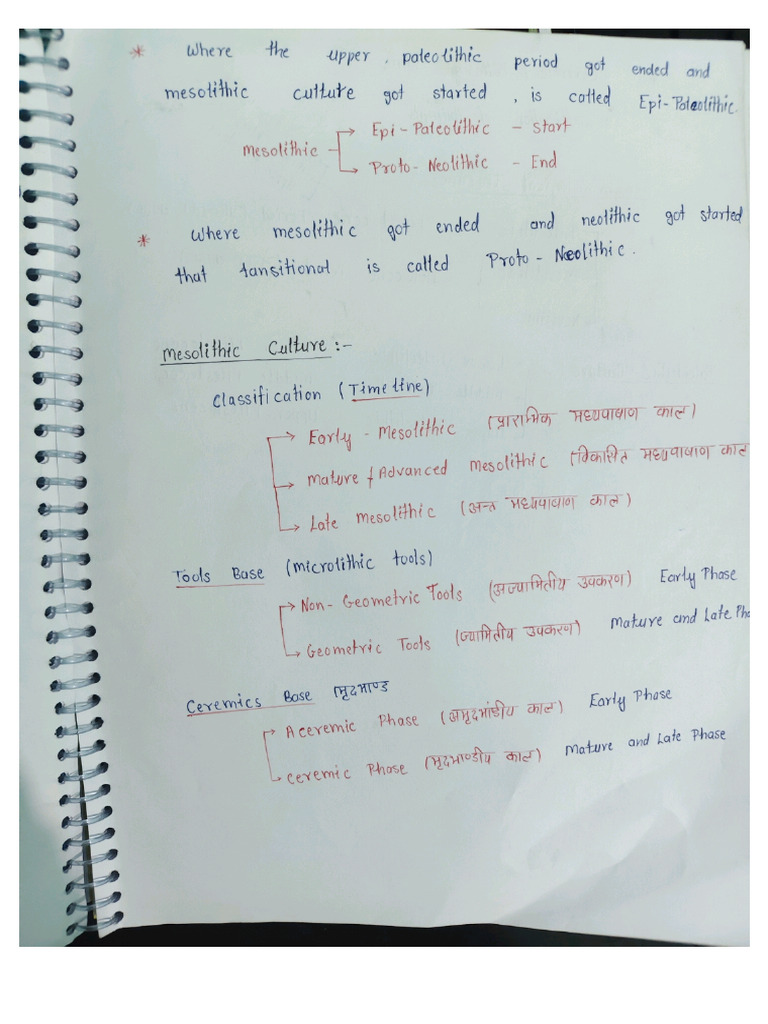 * Where the upper, paleolithic period got ended and
mesolithic culture got started, is called Epi-Paleolithic.
Mesolithic → Epi-Paleolithic - Start
→ Proto-Neolithic - End
* Where mesolithic got ended and neolithic got started
that tansitional is called Proto-Neolithic.
Mesolithic Culture :-
Classification (Timeline)
→ Early - Mesolithic (प्रारांभिक मध्यपाषाण काल)
→ Mature / Advanced Mesolithic (विकासित मध्यपाषाण काल
→ Late Mesolithic (अन्त मध्यपाषाण काल)
Tools Base (microlithic tools)
→ Non-Geometric Tools (अज्यामितीय उपकरण) Early Phase
→ Geometric Tools (ज्यामितीय उपकरण) Mature and Late Pha
Ceremics Base मृदभाण्ड
→ Aceremic Phase (अमृदभांडीय काल) Early Phase
→ Ceremic Phase (मृदभाण्डीय काल) Mature and Late Phase